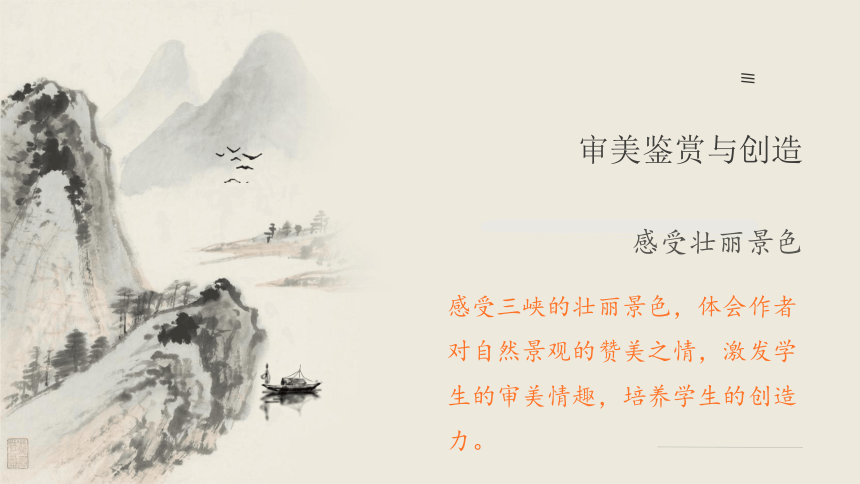 审美鉴赏与创造
感受壮丽景色
感受三峡的壮丽景色，体会作者
对自然景观的赞美之情，激发学
生的审美情趣，培养学生的创造
力。